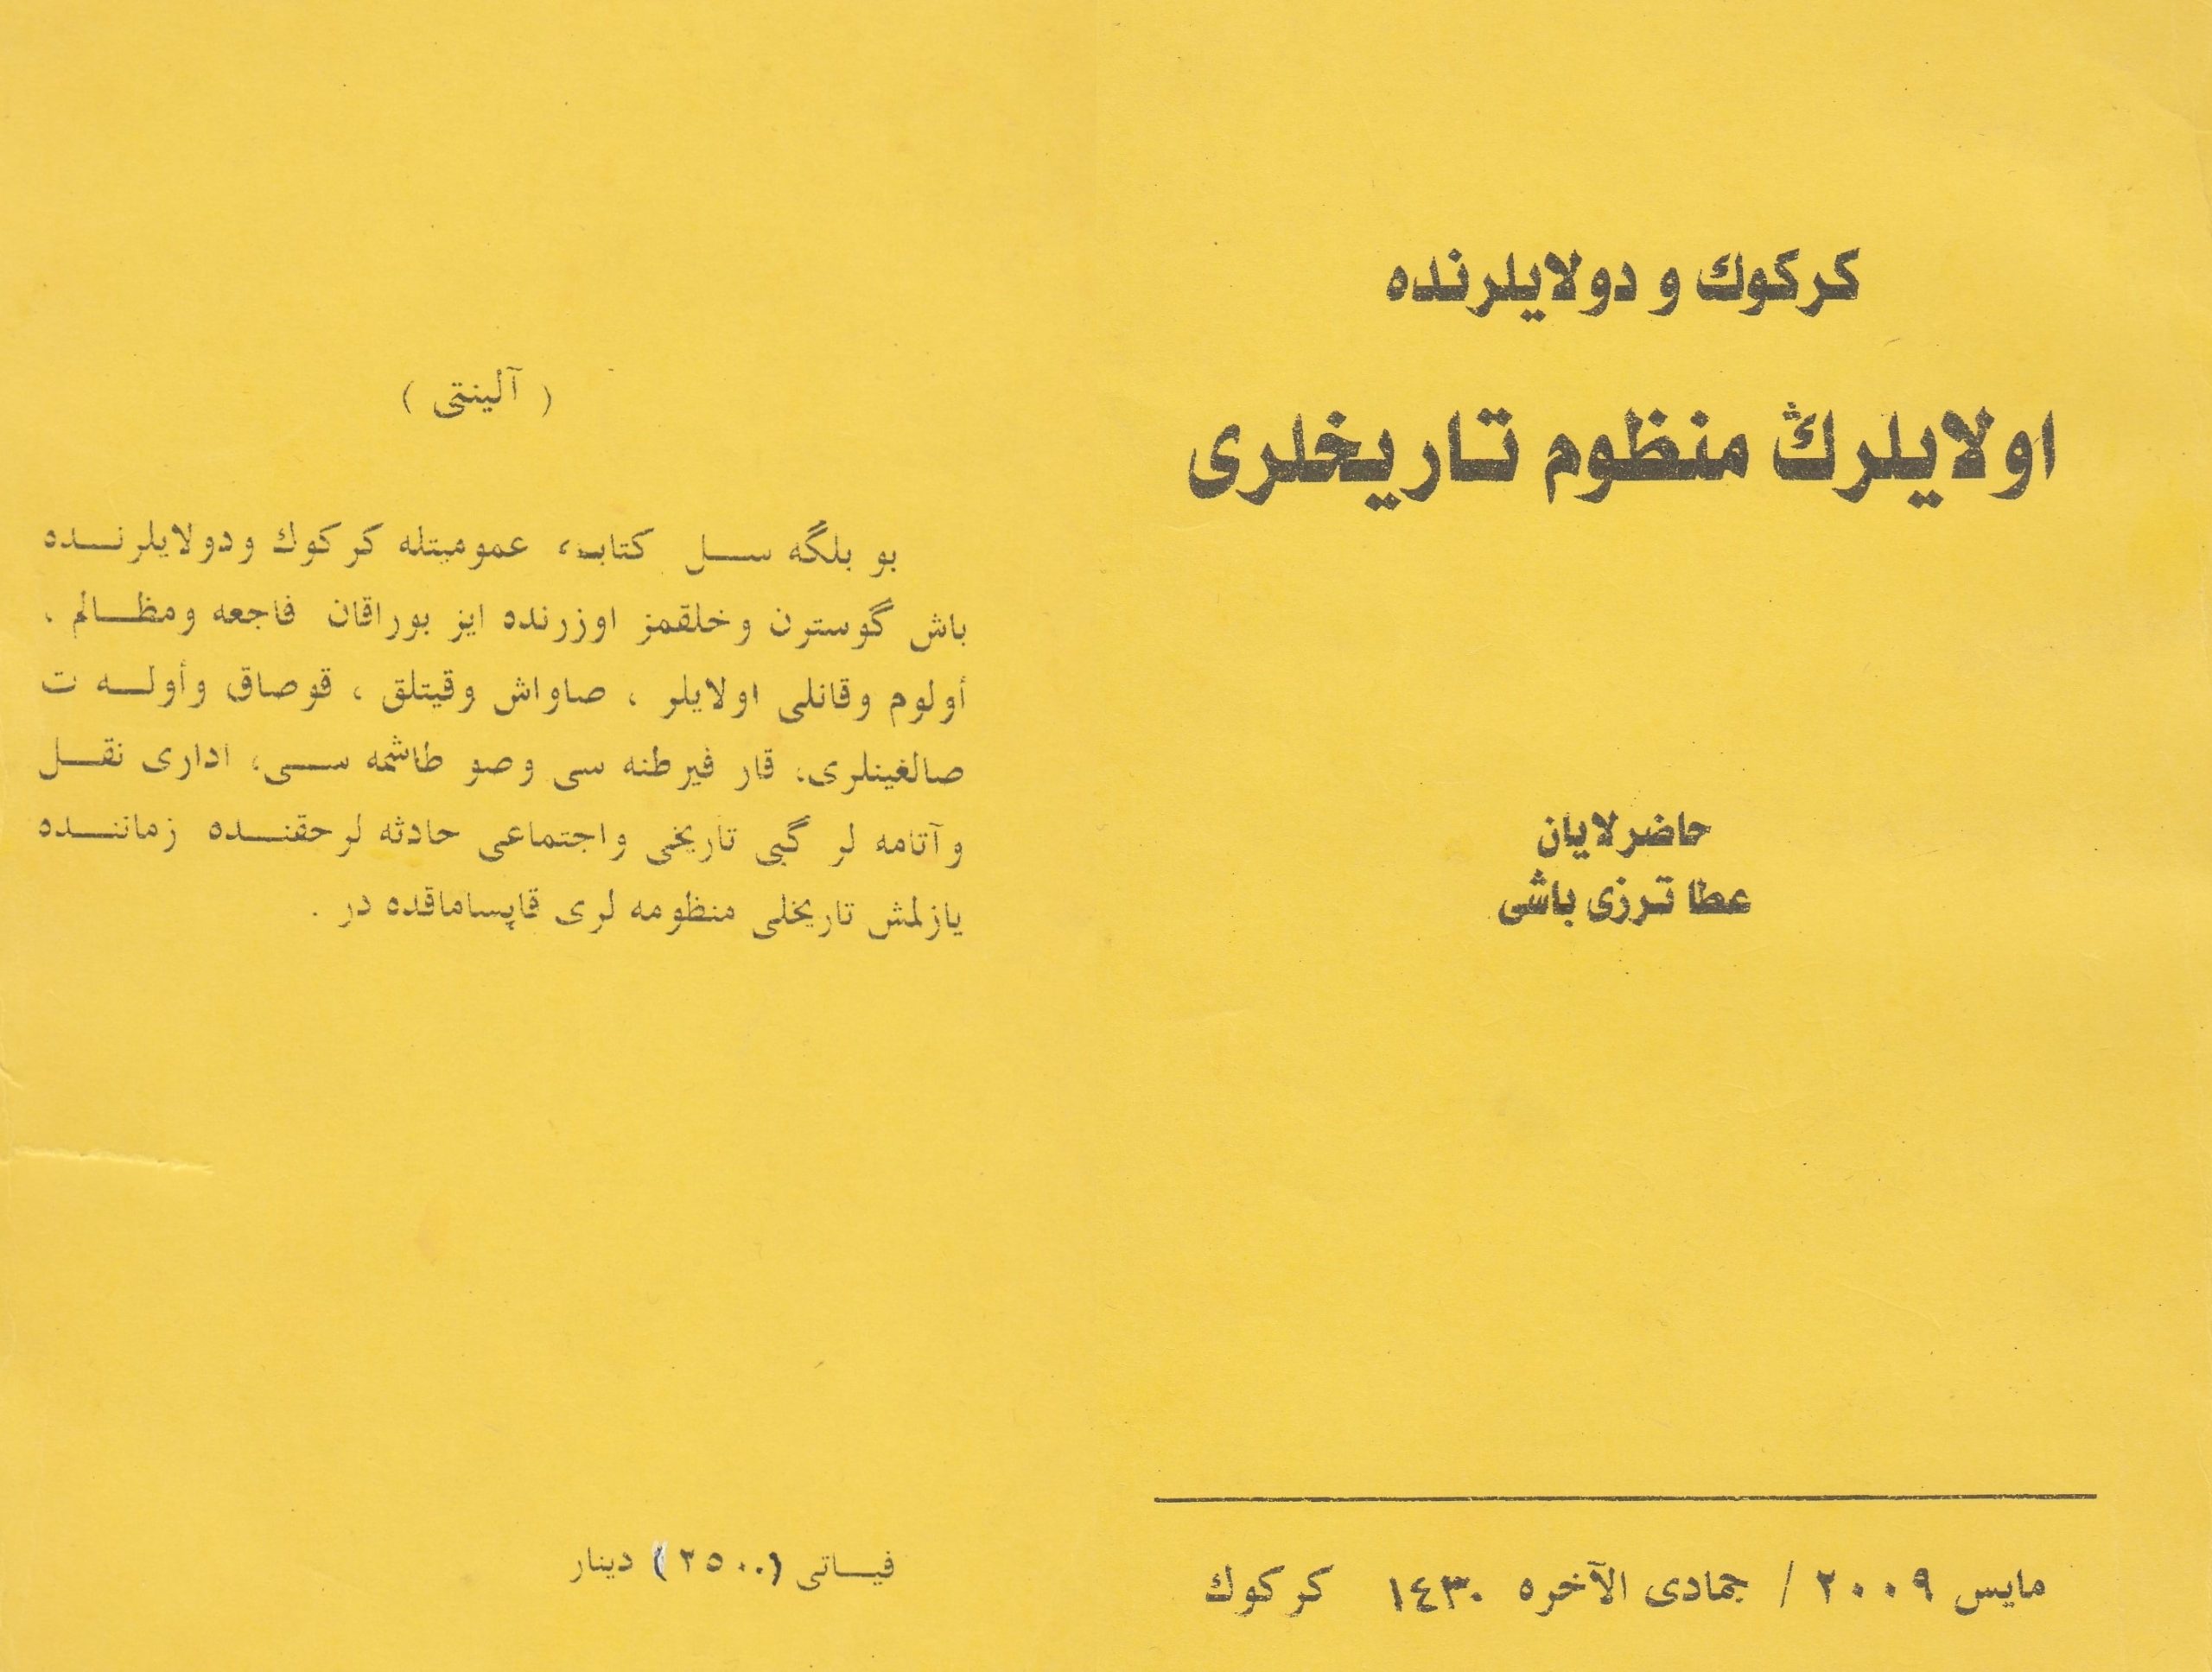 كركوك و دولايلرنده
اولايلرڭ منظوم تاريخلرى
حاضرلايان
عطا ترزى باشى
مايس ٢٠٠٩ / جمادى الآخره ١٤٣٠ كركوك
( آلينتى )
بو بلگه سل كتابه، عموميتله كركوك ودولايلرنده
باش گوسترن وخلقمز اوزرنده ايز بوراقان فاجعه ومظالم ،
أولوم وقانلى اولايلر ، صاواش وقيتلق ، قوصاق وأوله ت
صالغينلرى، قار فيرطنه سى وصو طاشمه سى، ادارى نقل
وآتامه لر گبى تاريخى واجتماعى حادثه لرحقنده زماننده
يازلمش تاريخلى منظومه لرى قاپساماقده در .
فياتى (٢٥٠٠) دينار